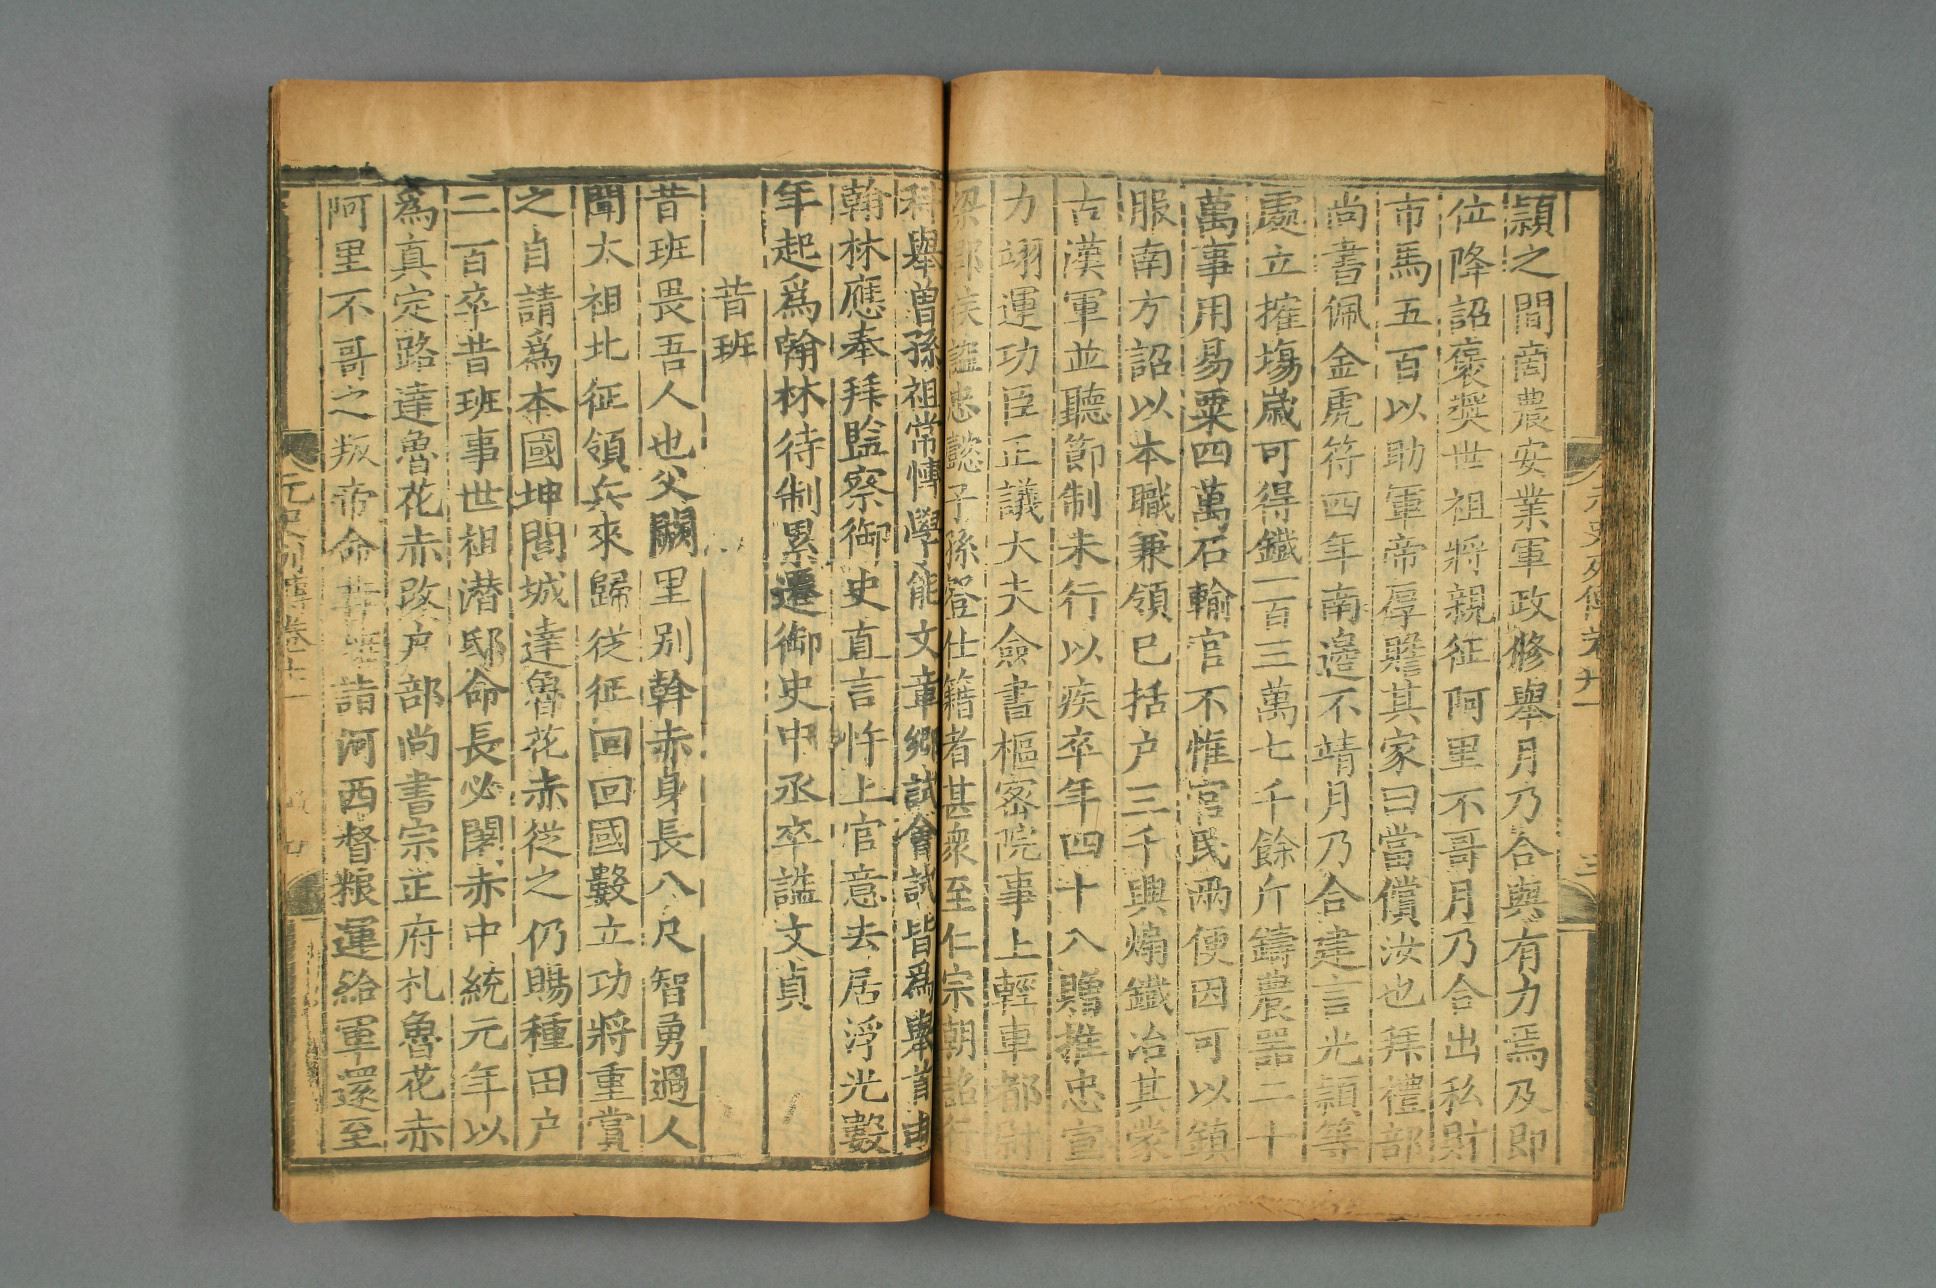 潁之間商農安業軍政修舉月乃合與有力焉及即
位降詔褒奬世祖將親征阿里不哥月乃合出私財
市馬五百以助軍帝厚賜其家曰當償汝也拜禮部
尚書佩金虎符四年南邊不靖月乃合建言光潁等
處立搉場歲可得鐵一百三萬七千餘斤鑄農器二十
萬事用易粟四萬石輸官不惟官民兩便因可以鎮
服南方詔以本職兼領已括户三千興煽鐵冶其蒙
古漢軍並聽節制未行以疾卒年四十八贈推忠宣
力翊運功臣正議大夫僉書樞密院事上輕車都尉
梁郡侯諡忠懿子孫登仕籍者甚衆至仁宗朝詔行
科舉曾孫祖常慱學能文章鄉試會試皆爲舉首由
翰林應奉拜監察御史直言忤上官意去居浮光數
年起爲翰林待制累遷御史中丞卒諡文貞
昔班
昔班畏吾人也父闕里别斡赤身長八尺智勇過人
聞太祖北征領兵來歸從征回回國數立功將重賞
之自請爲本國坤閭城達魯花赤從之仍賜種田户
二百卒昔班事世祖潜邸命長必闍赤中統元年以
爲真定路達魯花赤改户部尚書宗正府札魯花赤
阿里不哥之叛帝命昔班詣河西督粮運給軍還至